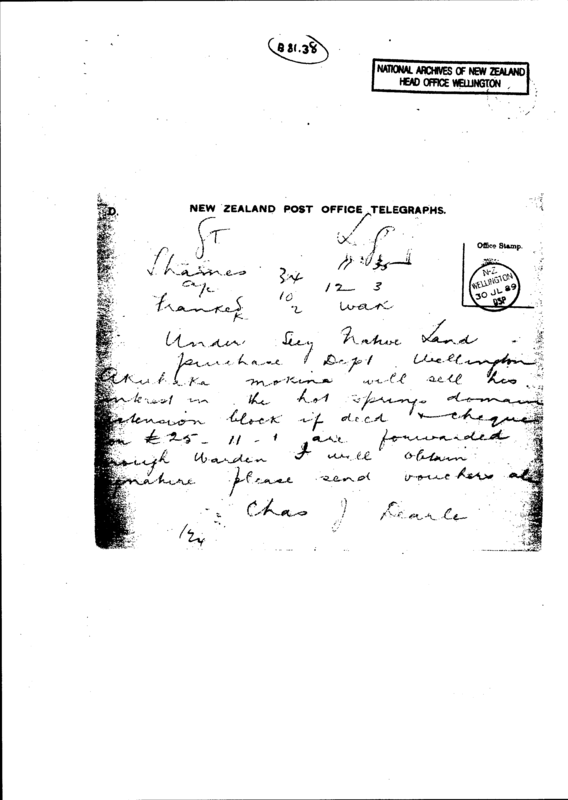 B 81.38
NATIONAL ARCHIVES OF NEW ZEALAND
HEAD OFFICE WELLINGTON
D.
NEW ZEALAND POST OFFICE TELEGRAPHS.
Office Stamp.
N-Z
WELLINGTON
30 JL 89
Thames 34
12 3
Franked 10 2
Under Secy Native Land
purchase Dept Wellington
mokina will sell his
interest in the hot springs domain
extension block if deed & cheque
£25-11-1 are forwarded
Warden I will obtain
please send vouchers
Chas J Dearle